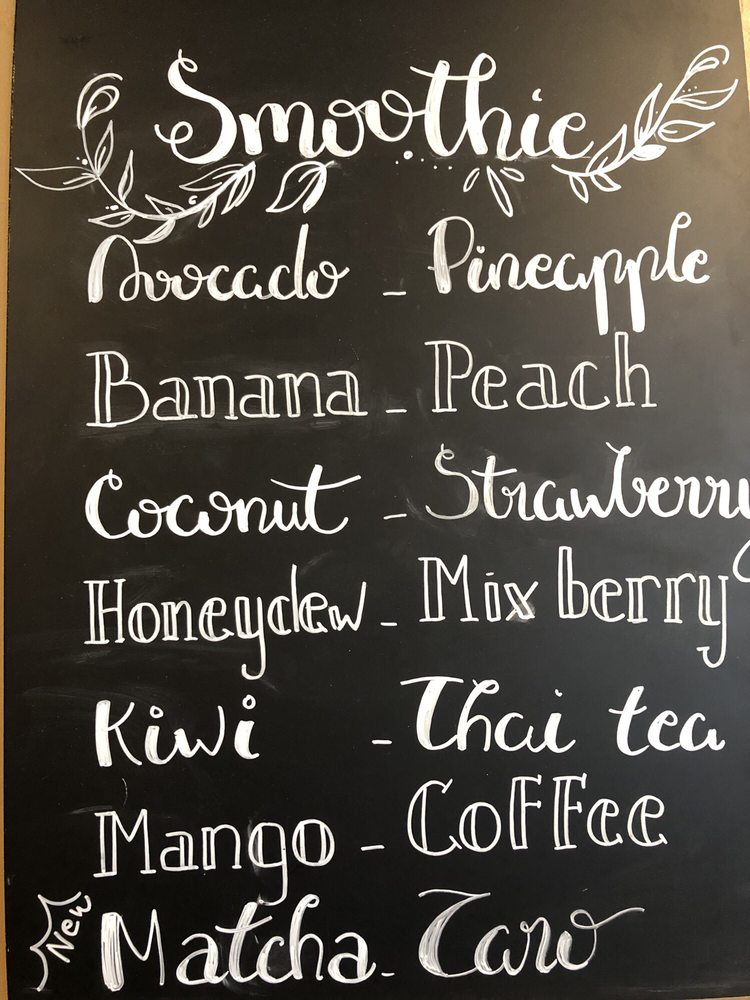 Smoothie
Avocado - Pineapple
Banana - Peach
Coconut - Strawberry
Honeydew - Mix berry
Kiwi - Thai tea
Mango - Coffee
New Matcha - Taro